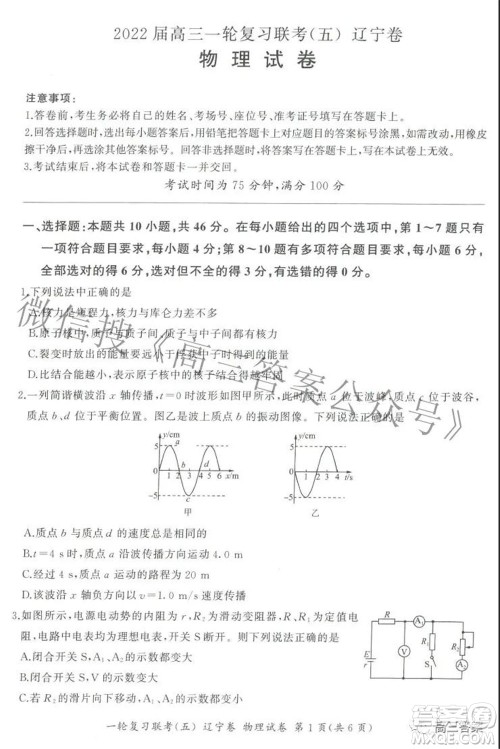 2022届高三一轮复习联考(五) 辽宁卷
物理试卷
注意事项:
1.答卷前,考生务必将自己的姓名、考场号、座位号、准考证号填写在答题卡上。
2.回答选择题时,选出每小题答案后,用铅笔把答题卡上对应题目的答案标号涂黑,如需改动,用橡皮
擦干净后,再选涂其他答案标号。回答非选择题时,将答案写在答题卡上,写在本试卷上无效。
3.考试结束后,将本试卷和答题卡一并交回。
考试时间为75分钟,满分100分
一、选择题:本题共10小题,共46分。在每小题给出的四个选项中,第1~7题只有
一项符合题目要求,每小题4分;第8~10题有多项符合题目要求,每小题6分,
全部选对的得6分,选对但不全的得3分,有选错的得0分。
1.下列说法中正确的是
A.核力是库仑力,核力与库仑力大小相等
B.原子核中质子与质子、质子与中子间都存在核力
C.裂变时放出的能量
D.比结合能越小,表示原子核中的核子结合得越牢固
2.一列简谐横波沿x轴传播,t=0时波形如图甲所示,质点a位于波峰,质点c位于波谷,
质点b、d位于平衡位置。图乙是波上质点b的振动图像。下列说法正确的是
y/cm
5
0
-5
1 2 3 4 x/m
甲
y/cm
5
0
-5
1 2 3 4 t/s
乙
A.质点b与质点d的速度总是相同
B.t=4 s时,质点a沿波传播方向运动4.0 m
C.经过4 s,质点a运动的路程为20 m
D.该波沿x轴负方向以v=1.0 m/s的速度传播
3.如图所示,电源电动势的内阻为r,R₂为滑动变阻器,R₁为定值电
阻,电流表和电压表均为理想电表。则下列说法正确的是
A.闭合开关S,A₁、A₂的示数都变大
B.闭合开关S,A₁、A₂的示数都变小
C.若R₂的滑片向下移动,则V的示数变大
R
A₁
S
R₁
R₂
V
A₂
一轮复习联考(五) 辽宁卷 物理试卷 第1页(共6页)
微信搜《高三答案公众号》
高三答案